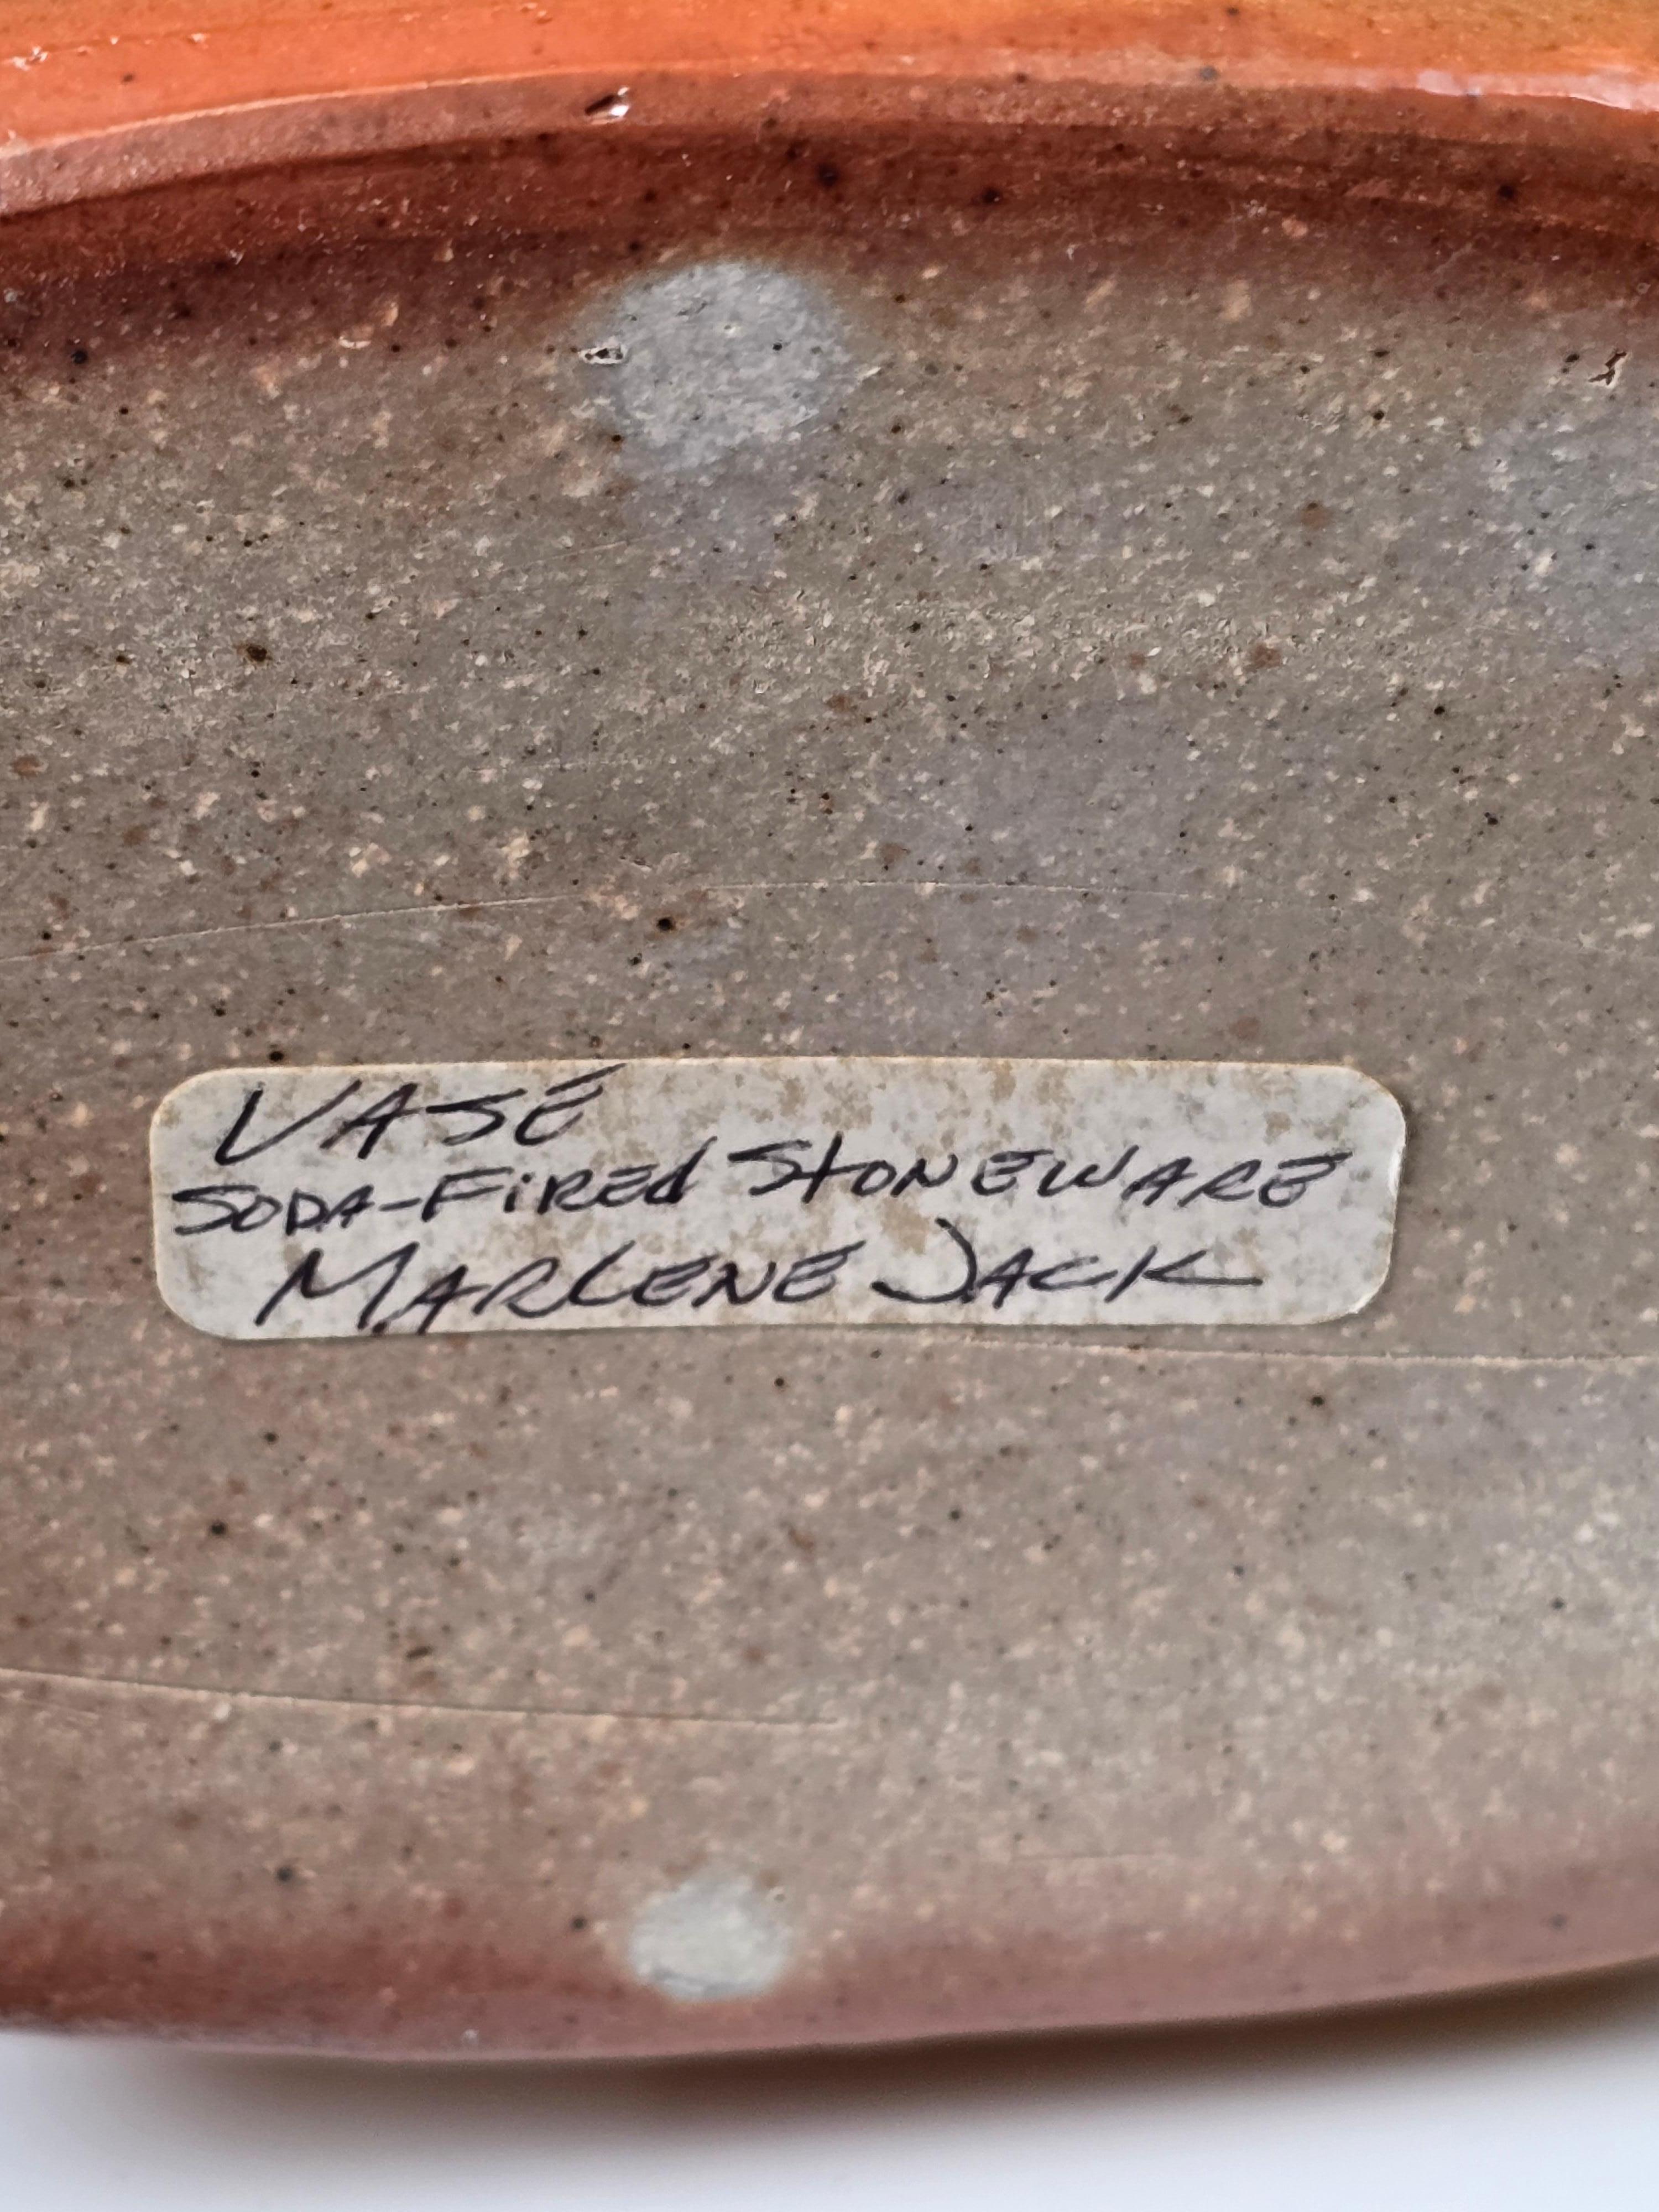 VASE
SODA-FiREd StONEWARE
MARLENE JACK